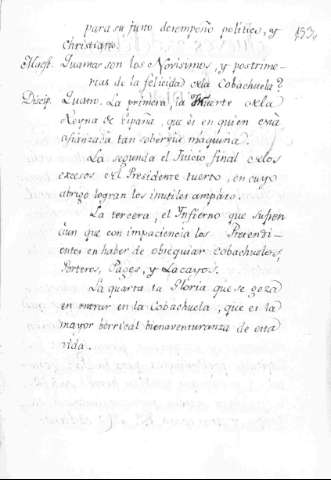 para su justo desempeño politico, y
153
christiano.
Maest. Quantos son los Novisimos, y postrime-
rias de la felicida dela Cobachuela?
Discip. Quatro. La primera, la Muerte dela
Reyna de España, que es en quien está
afianzada tan sobervia maquina.
La segunda el Juicio final delos
excesos del Presidente tuerto, en cuyo
abrigo logran los inutiles amparo.
La tercera, el Infierno que sufren
aun que con impaciencia los Pretendi-
entes en haber de obsequiar Cobachuelos,
Porteros, Pages, y Lacayos.
La quarta la Gloria que se goza
en entrar en la Cobachuela, que es la
mayor borrical bienaventuranza de esta
vida.